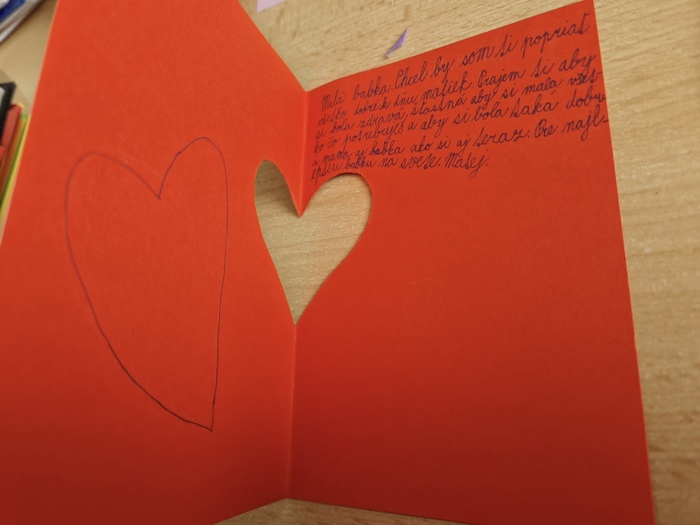 Milá babka. Chcel by som ti popriať
všetko dobré k dňu matiek. Prajem ti aby
si bola zdravá, šťastná aby si mala všet-
ko čo potrebuješ a aby si bola taká dobrá
a mama aj babka ako si aj teraz. Pre najl-
epšiu babku na svete. Matej.